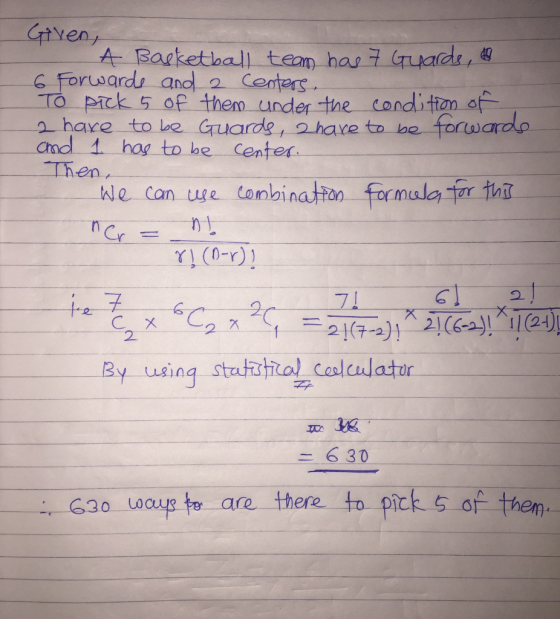 Given,
A Basketball team has 7 Guards,
6 Forwards and 2 Centers.
To pick 5 of them under the condition of
2 have to be Guards, 2 have to be forwards
and 1 has to be center.
Then,
We can use combination formula for this
nCr = n! / r! (n-r)!
i.e 7C2 x 6C2 x 2C1 = 7! / 2!(7-2)! x 6! / 2!(6-2)! x 2! / 1!(2-1)!
By using statistical calculator
= 630
∴ 630 ways are there to pick 5 of them.